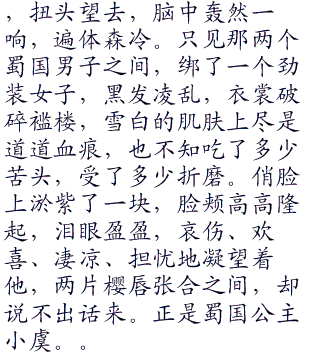 ，扭头望去，脑中轰然一
响，遍体森冷。只见那两个
蜀国男子之间，绑了一个劲
装女子，黑发凌乱，衣裳破
碎褴楼，雪白的肌肤上尽是
道道血痕，也不知吃了多少
苦头，受了多少折磨。俏脸
上淤紫了一块，脸颊高高隆
起，泪眼盈盈，哀伤、欢
喜、凄凉、担忧地凝望着
他，两片樱唇张合之间，却
说不出话来。正是蜀国公主
小虞。。